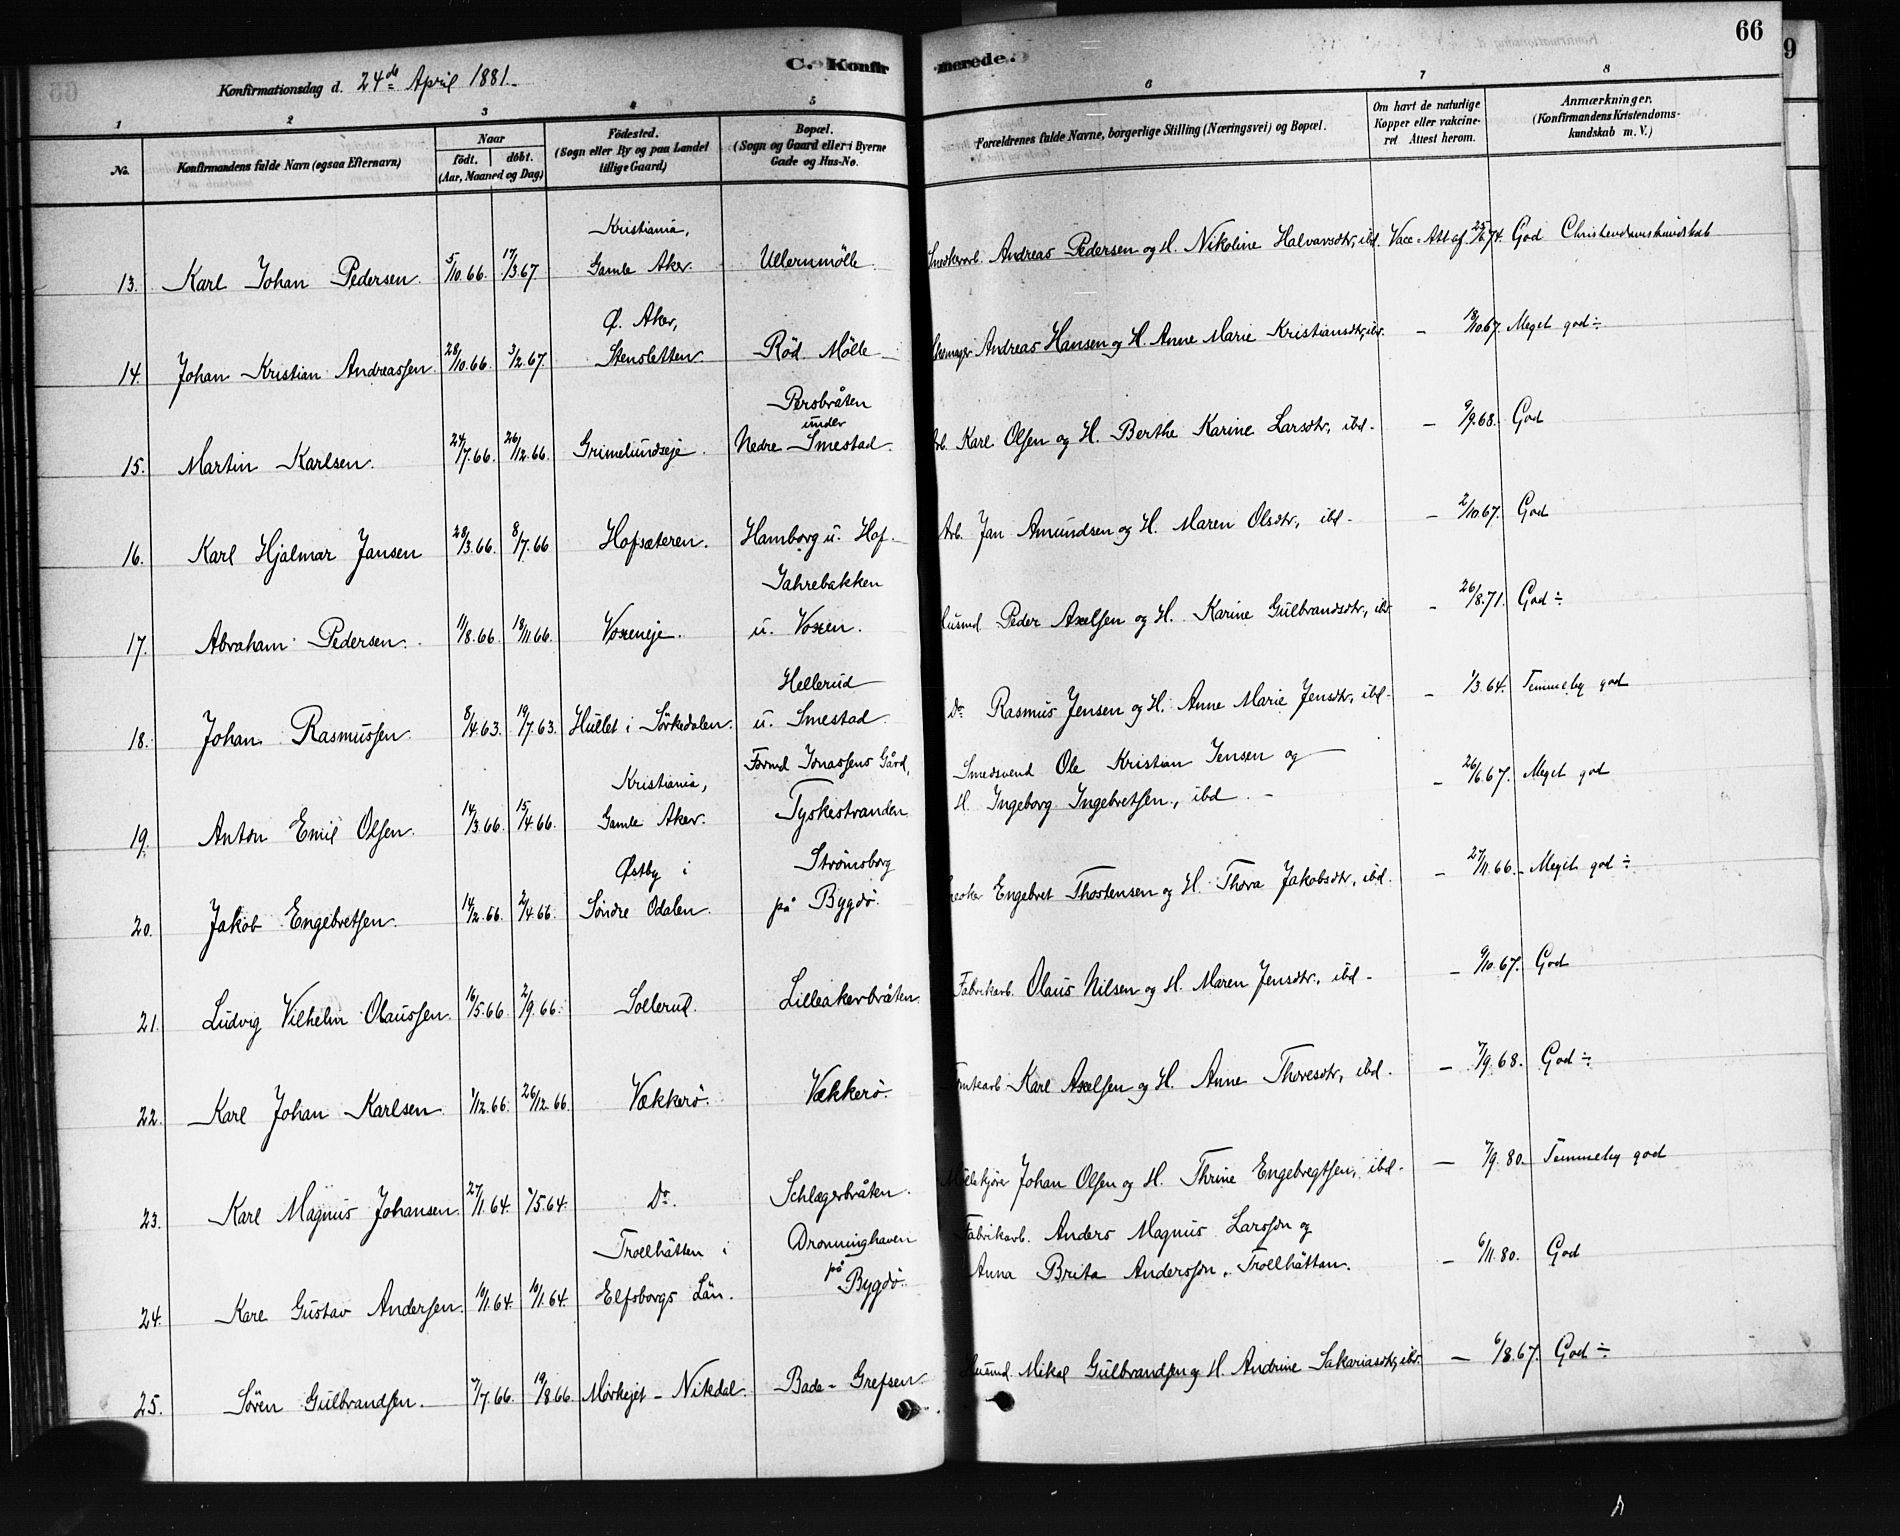 66
C. Konfirmerede.
Konfirmationsdag d. 24de April 1881.
1 2 3 4 5 6 7 8
No.
Konfirmandens fulde Navn (ogsaa Efternavn)
Naar
født. døbt.
(Aar, Maaned og Dag)
Fødested.
(Sogn eller By og paa Landet
tillige Gaard)
Bopæl.
(Sogn og Gaard eller i Byerne
Gade og Hus-No.
Forældrenes fulde Navne, borgerlige Stilling (Næringsvei) og Bopæl.
Om havt de naturlige
Kopper eller vakcine-
ret Attest herom.
Anmærkninger.
(Konfirmandens Kristendoms-
kundskab m. V.)
13. Karl Johan Pedersen. 5/10.66. 17/3.67. Kristiania, Gamle Aker. Ullernmölle. Andreas Pedersen og H. Nikoline Halvorsdtr, ibd. Vacc. Att. af 25/6.74. God Christendomskundskab
14. Johan Kristian Andreassen. 28/10.66. 3/2.67. Ø. Aker, Stensletten. Röd Mölle Andreas Hansen og H. Anne Marie Kristiansdtr, ibd. — 13/10.67. Meget god ÷
15. Martin Karlsen. 24/7.66. 26/12.66. Grimelundseje. Persbråten under Nedre Smestad. Arb. Karl Olsen og H. Berthe Karine Larsdtr, ibd. — 9/9.68. God
16. Karl Hjalmar Jansen 28/3.66. 8/7.66 Hofsæteren. Hamborg u. Hof. Arb. Jan Amundsen og H. Maren Olsdtr, ibd. — 2/10.67. God
17. Abraham Pedersen. 11/8.66. 18/11.66. Voxeneje. Jahrebakken u. Voxen. Husmd Peder Axelsen og H. Karine Gulbrandsdtr, ibd. — 26/8.71. God ÷
18. Johan Rasmussen. 8/4.63. 19/7.63. Hullet i Sörkedalen. Hellerud u. Smestad. Do. Rasmus Jensen og H. Anne Marie Jensdtr, ibd. — 1/3.64. Temmelig god
19. Anton Emil Olsen. 14/3.66. 15/4.66. Kristiania, Gamle Aker. Formd Jonassens Gård, Tyskestranden Smedsvend Ole Kristian Jensen og
H. Ingeborg Ingebretsen, ibd. — 26/6.67. Meget god
20. Jakob Engebretsen. 14/2.66. 2/4.66. Østby i Söndre Odalen. Strömsborg på Bygdö. Engebret Thostensen og H. Thora Jakobsdtr, ibd. — 27/11.66. Meget god ÷
21. Ludvig Vilhelm Olaussen. 16/5.66. 2/9.66. Sollerud. Lilleakerbråten. Fabrikarb. Olaus Nilsen og H. Maren Jensdtr, ibd. — 9/10.67. God
22. Karl Johan Karlsen. 1/12.66. 26/12.66. Vækkerö. Vækkerö. Karl Axelsen og H. Anne Thoresdtr, ibd. — 7/9.68. God ÷
23. Karl Magnus Johansen. 27/1.64. 1/5.64. Do. Schlagerbråten. Möllekjörer Johan Olsen og H. Thrine Engebregtsen, ibd. — 7/9.80. Temmelig god
24. Karl Gustav Andersen. 10/1.64. 10/1.64. Trollhätten i Elfsborgs Län. Dronninghaven på Bygdö. Fabrikarb. Anders Magnus Larsson og
Anna Brita Andersson, Trollhättan. — 6/11.80. God
25. Sören Gulbrandsen. 7/7.66. 19/8.66. Mörkejet - Nitedal. Bade-Grefsen Husmd. Mikal Gulbrandsen og H. Andrine Sakariasdtr, ibd. — 6/8.67. God ÷